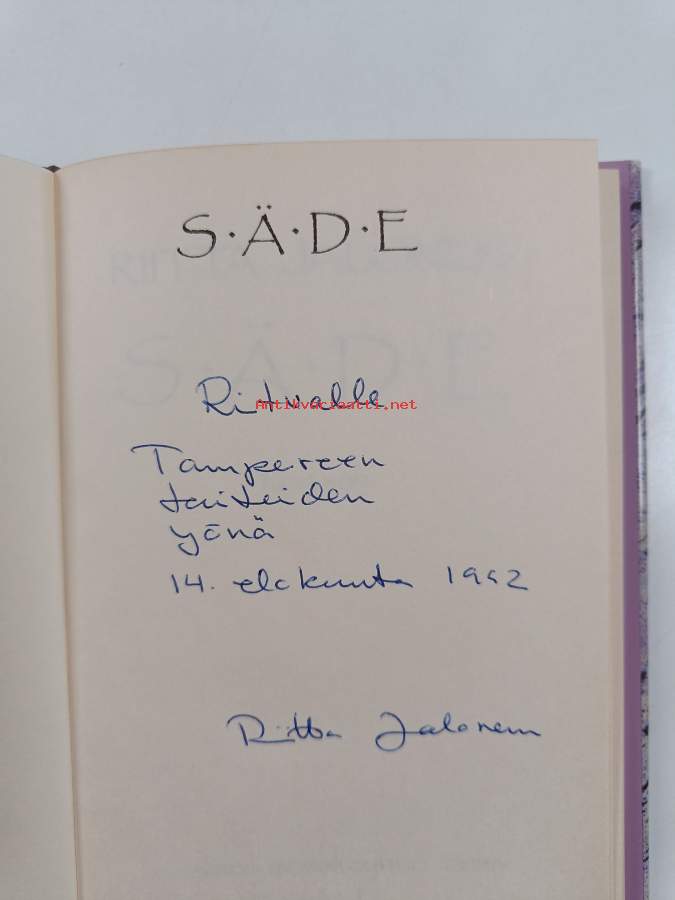 S·Ä·D·E
Ritvalle
Antikvariaatti.net
Tampereen
taiteiden
yönä
14. elokuuta 1992
Riitta Jalonen